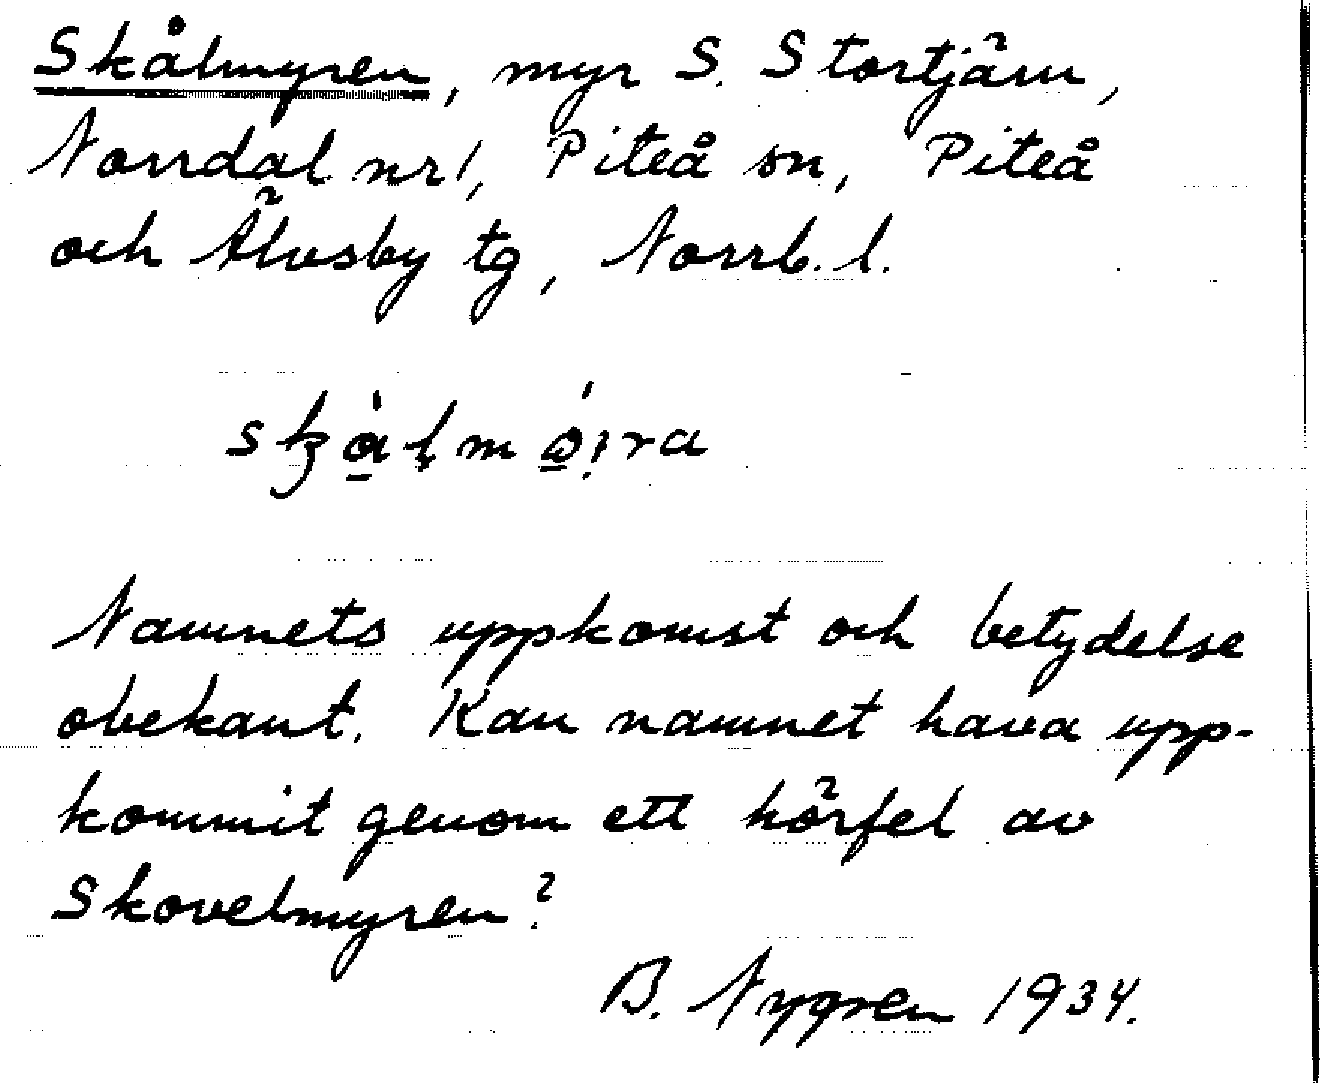 Skålmyren, myr S. Stortjärn,
Norrdal nr 1, Piteå sn, Piteå
och Älvsby tg, Norrb. l.
Namnets uppkomst och betydelse
obekant. Kan namnet hava upp-
kommit genom ett hörfel av
Skovelmyren?
B. Nygren 1934.